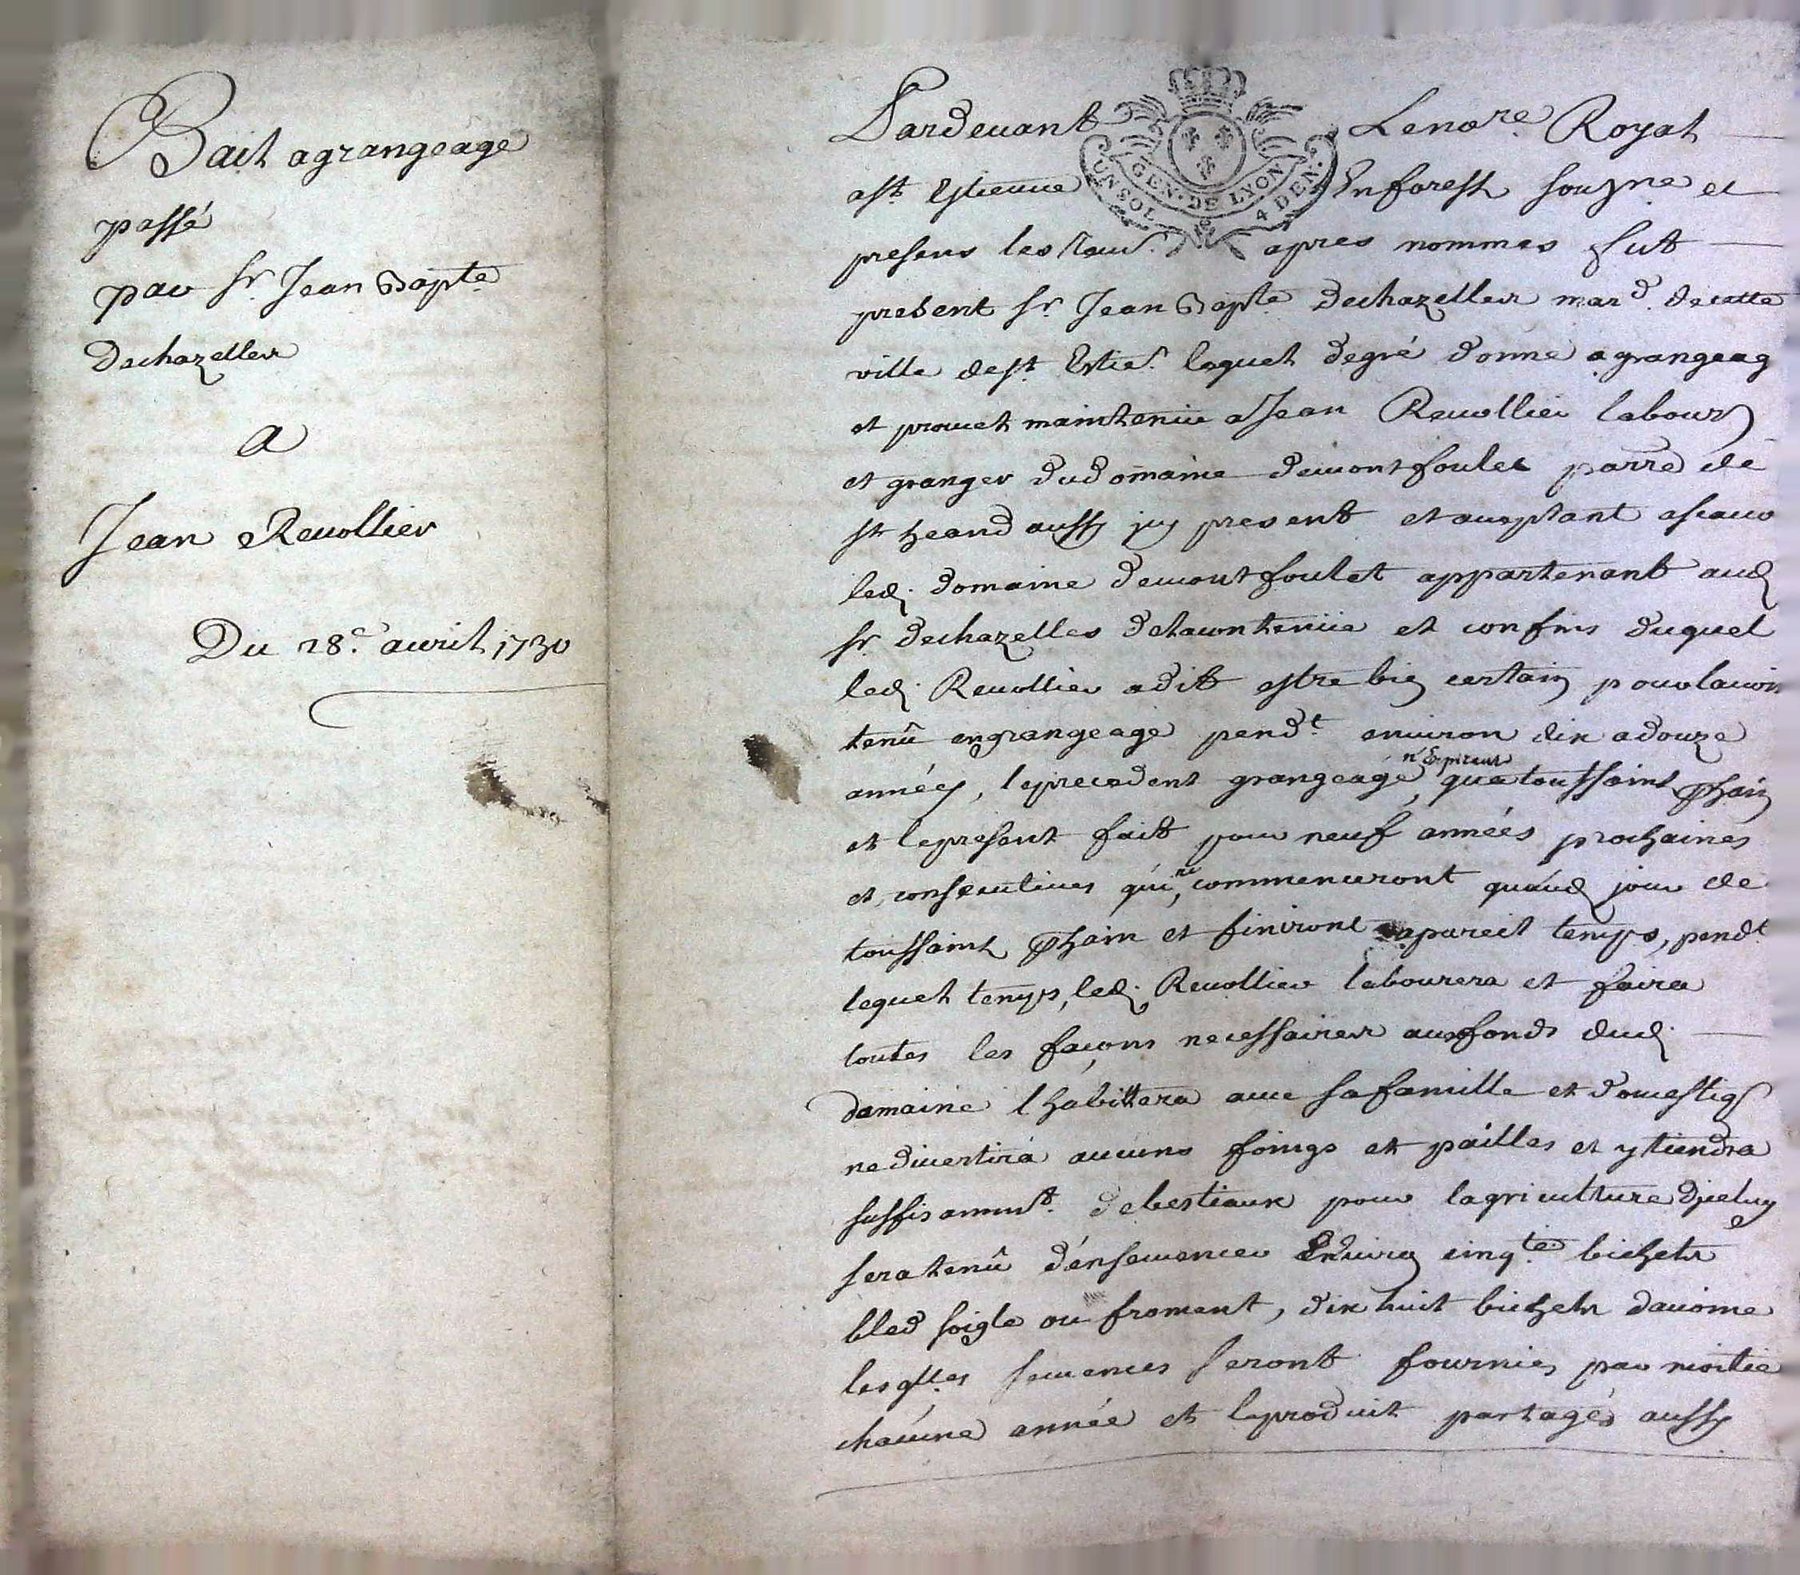 Bail agrangeage
passé
par Sr. Jean Bapte
Dechazelles
A
Jean Revollier
Du 28e. avril 1730
Pardevant Le nore. Royal
a St. Estienne En forest sousne et
presens les tem. apres nommes fut
present Sr. Jean Bapte. Dechazelles mard. de cette
ville de St. Estie. lequel de gré donne a grangeag
et promet maintenir a Jean Revollier labour
et granger du domaine de montfoulet parre de
St heand aussy icy present et aceptant ascavo
led. domaine de montfoulet appartenant aud
Sr. dechazelles de la contenue et confins duquel
led. Revollier a dit estre bien certain pour lavoir
tenû en grangeage pendt. environ dix a douze
années, le precedent grangeage, n'Expirant qua toussaint pchain
et le present fait pour neuf années prochaines
et consecutives qui, ne commenceront quaud jour de
toussaint pchain et finiront a pareil temps, pendt.
lequel temps, led. Revollier labourera et faira
toutes les façons necessaires aux fonds dud.
domaine l habittera avec sa famille et domestiq
ne divertira aucuns foings et pailles et y tiendra
suffisammt. de bestiaux pour lagriculture diceluy
sera tenû d'ensemencer Environ cinqte. bichets
bled soigle ou froment, dix huit bichets davoine
lesqlles semences seront fournies par moitié
chacune année et le produit partagés aussy
GEN. DE LYON
UN SOL 4 DEN.